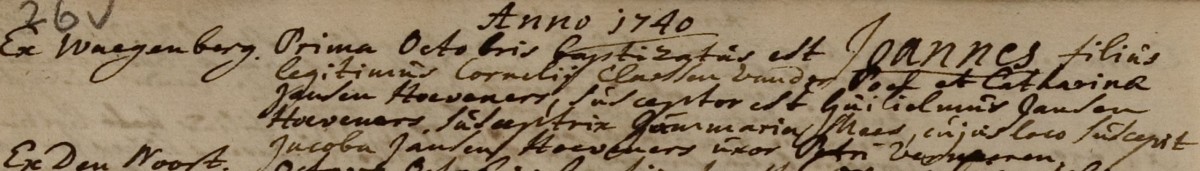 26v
Anno 1740
Ex Waegenberg. Prima Octobris baptizatus est Joannes filius
legitimus Cornelij Claessen vander Poel et Catharina
Jansen Hoeveners, susceptor est Guilielmus Jansen
Hoeveners, susceptrix Maria Mees, cujus loco suscepit
Jacoba Jansen Hoeveners uxor Petri
Ex Den Noort.